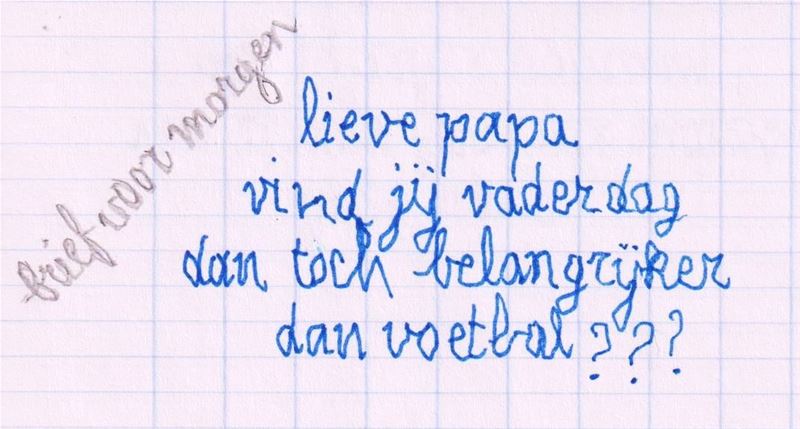 brief voor morgen
lieve papa
vind jij vaderdag
dan toch belangrijker
dan voetbal ???